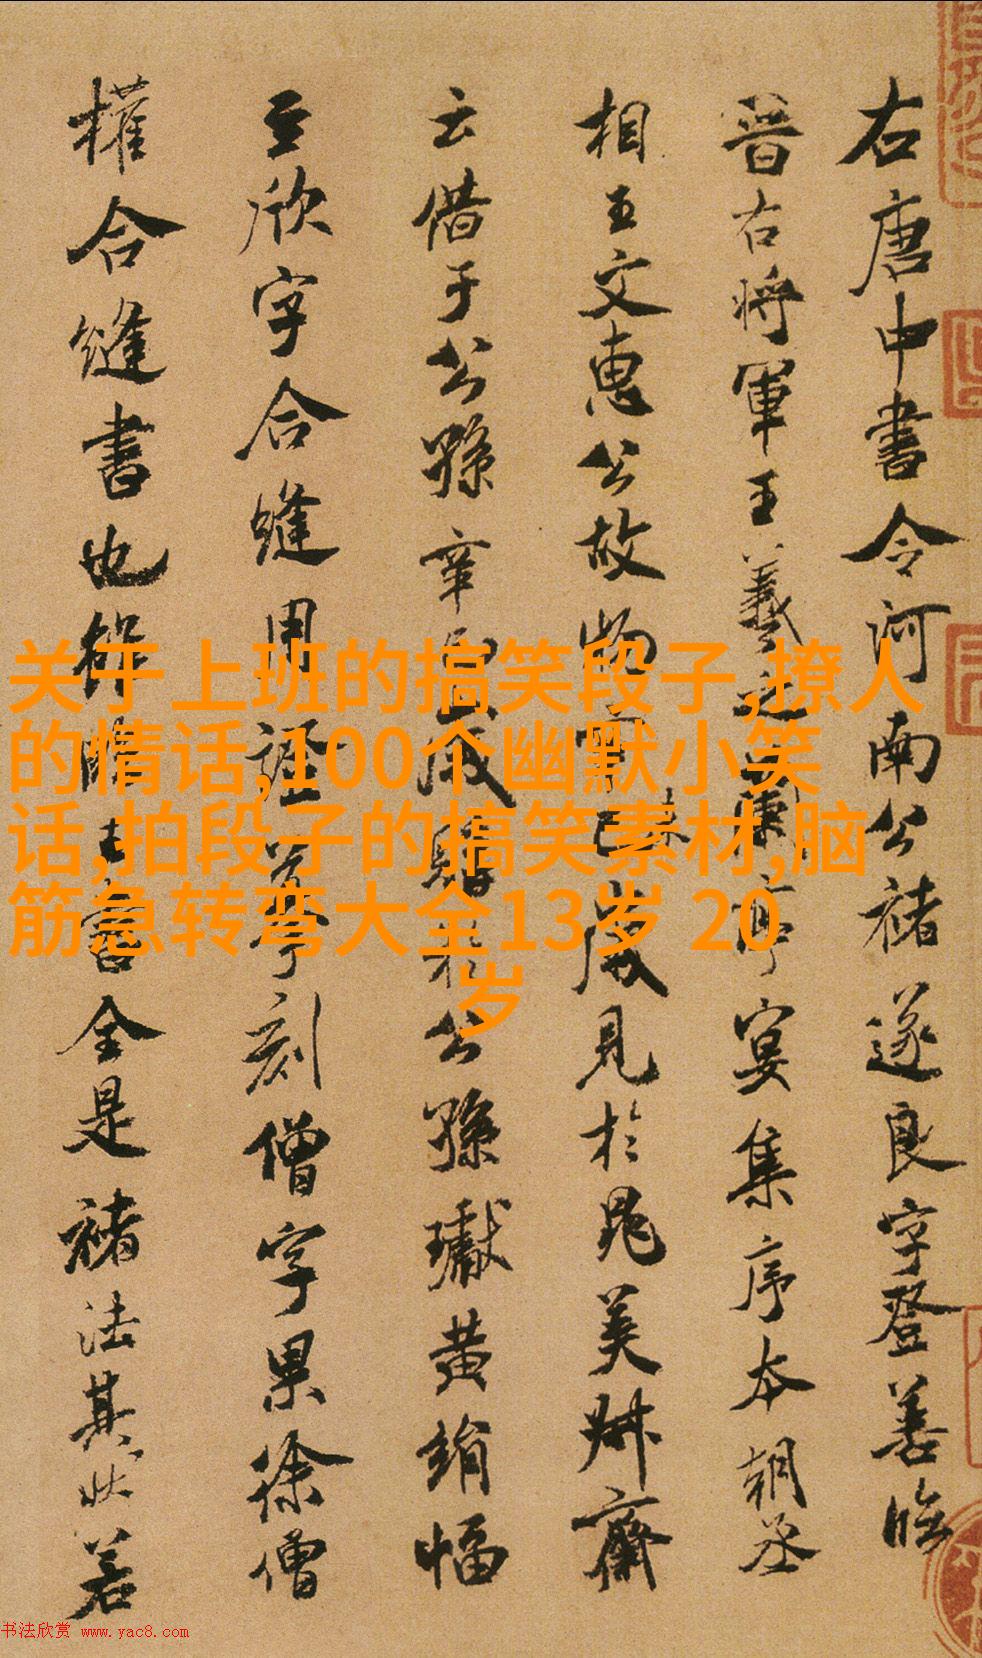 右唐中書令河南公褚遂良字登善臨
晉右將軍王羲之蘭亭宴集序本朝丞
相王文惠公故物辛未歲見於晁美叔齋
云借于公孫辛巳歲購於公孫瓛黃絹幅
至欣字合縫用證摹刻僧字果徐僧
權合縫書也雖臨王書全是褚法其狀若
关于上班的搞笑段子,撩人
的情话,100个幽默小笑
话,拍段子的搞笑素材,脑
筋急转弯大全13岁 20
岁
书法欣赏 www.yac8.com